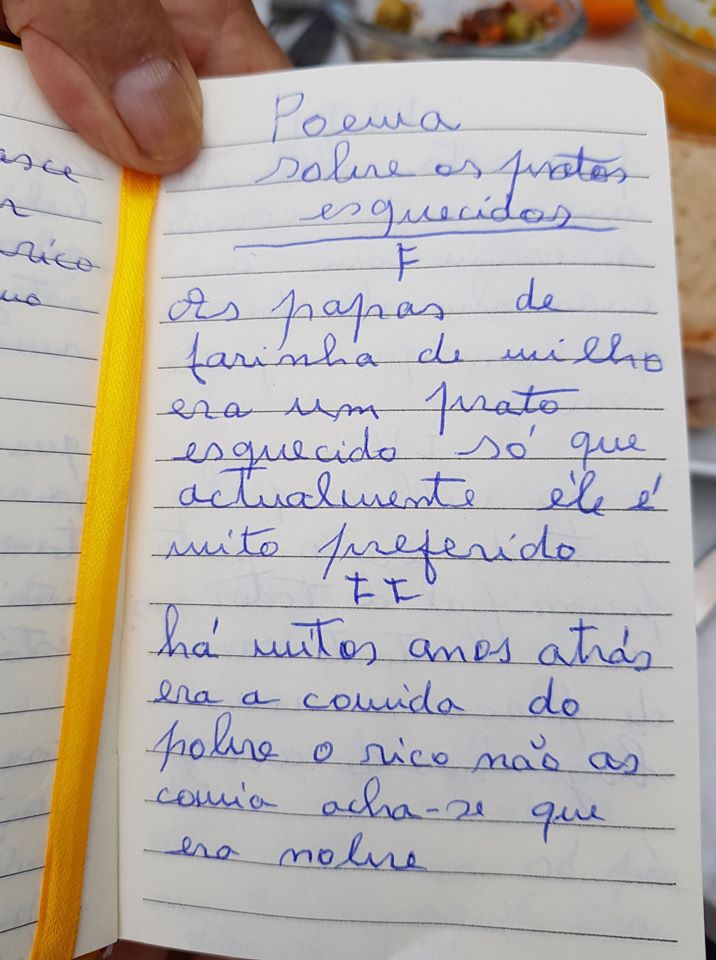 asce
r
rico
uo
Poema
sobre os pratos
esquecidos
I
As papas de
farinha de milho
era um prato
esquecido só que
actualmente éle é
muito preferido
II
há muitos anos atrás
era a comida do
pobre o rico não as
comia acha-se que
era nobre